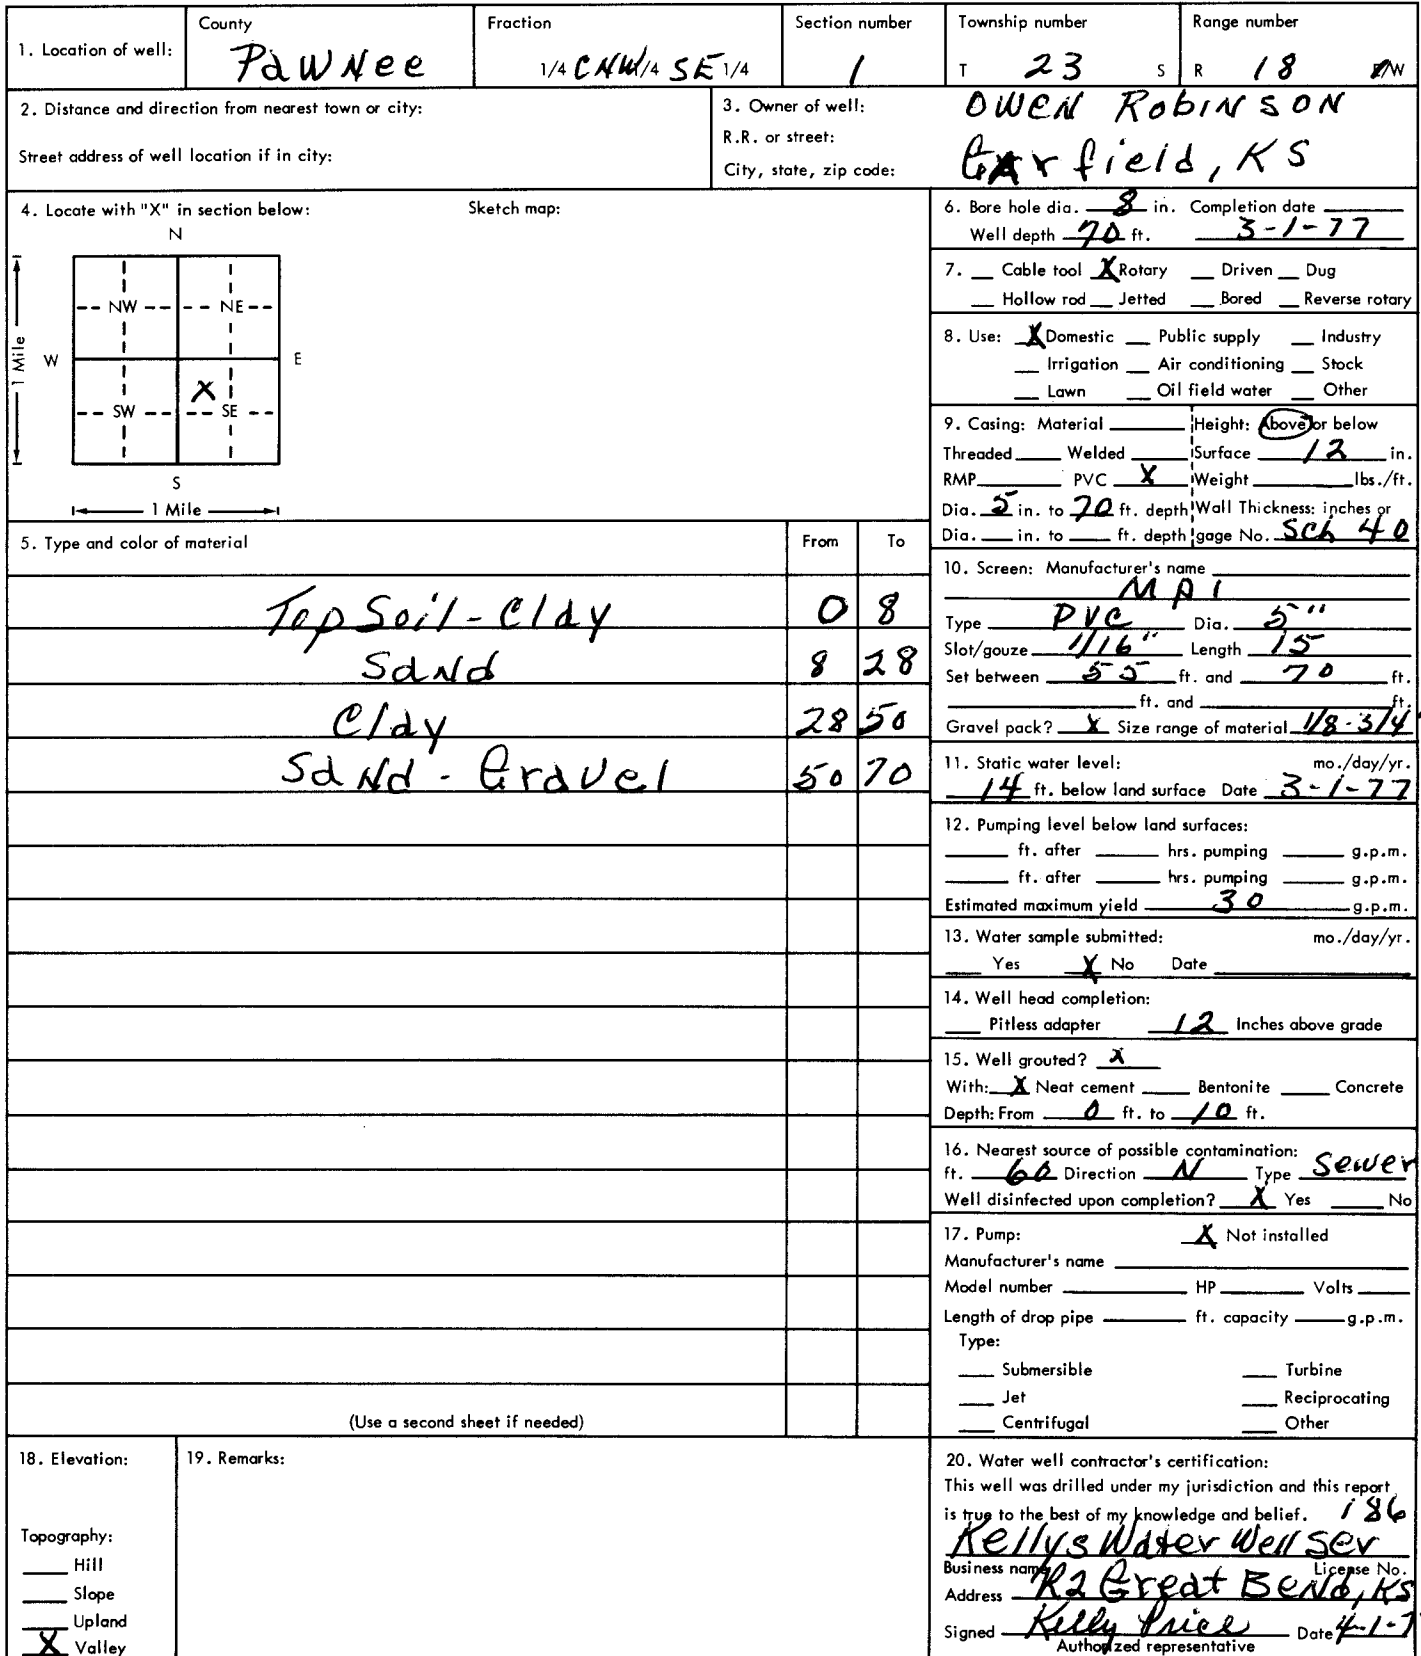 County Fraction Section number Township number Range number
1. Location of well: PaWNee 1/4 CNW 1/4 SE 1/4 1 T 23 S R 18 E/W
2. Distance and direction from nearest town or city:
Street address of well location if in city:
3. Owner of well: OWEN ROBINSON
R.R. or street:
City, state, zip code: Garfield, KS
4. Locate with "X" in section below: Sketch map:
N
NW NE
W E
X
SW SE
S
1 Mile
1 Mile
5. Type and color of material From To
TopSoil - Clay 0 8
Sand 8 28
Clay 28 50
Sand - Gravel 50 70
(Use a second sheet if needed)
6. Bore hole dia. 8 in. Completion date
Well depth 70 ft. 3-1-77
7. Cable tool X Rotary Driven Dug
Hollow rod Jetted Bored Reverse rotary
8. Use: X Domestic Public supply Industry
Irrigation Air conditioning Stock
Lawn Oil field water Other
9. Casing: Material Height: Above or below
Threaded Welded Surface 12 in.
RMP PVC X Weight lbs./ft.
Dia. 5 in. to 70 ft. depth Wall Thickness: inches or
Dia. in. to ft. depth gage No. Sch 40
10. Screen: Manufacturer's name
MPI
Type PVC Dia. 5"
Slot/gouze 1/16" Length 15
Set between 55 ft. and 70 ft.
ft. and ft.
Gravel pack? X Size range of material 1/8-3/4"
11. Static water level: mo./day/yr.
14 ft. below land surface Date 3-1-77
12. Pumping level below land surfaces:
ft. after hrs. pumping g.p.m.
ft. after hrs. pumping g.p.m.
Estimated maximum yield 30 g.p.m.
13. Water sample submitted: mo./day/yr.
Yes X No Date
14. Well head completion:
Pitless adapter 12 Inches above grade
15. Well grouted? X
With: X Neat cement Bentonite Concrete
Depth: From 0 ft. to 10 ft.
16. Nearest source of possible contamination:
ft. 60 Direction N Type Sewer
Well disinfected upon completion? X Yes No
17. Pump: X Not installed
Manufacturer's name
Model number HP Volts
Length of drop pipe ft. capacity g.p.m.
Type:
Submersible Turbine
Jet Reciprocating
Centrifugal Other
18. Elevation:
Topography:
Hill
Slope
Upland
X Valley
19. Remarks:
20. Water well contractor's certification:
This well was drilled under my jurisdiction and this report
is true to the best of my knowledge and belief. 186
Kellys Water Well Ser
Business name License No.
Address R2 Great Bend, KS
Signed Kelly Price Date 4-1-7
Authorized representative